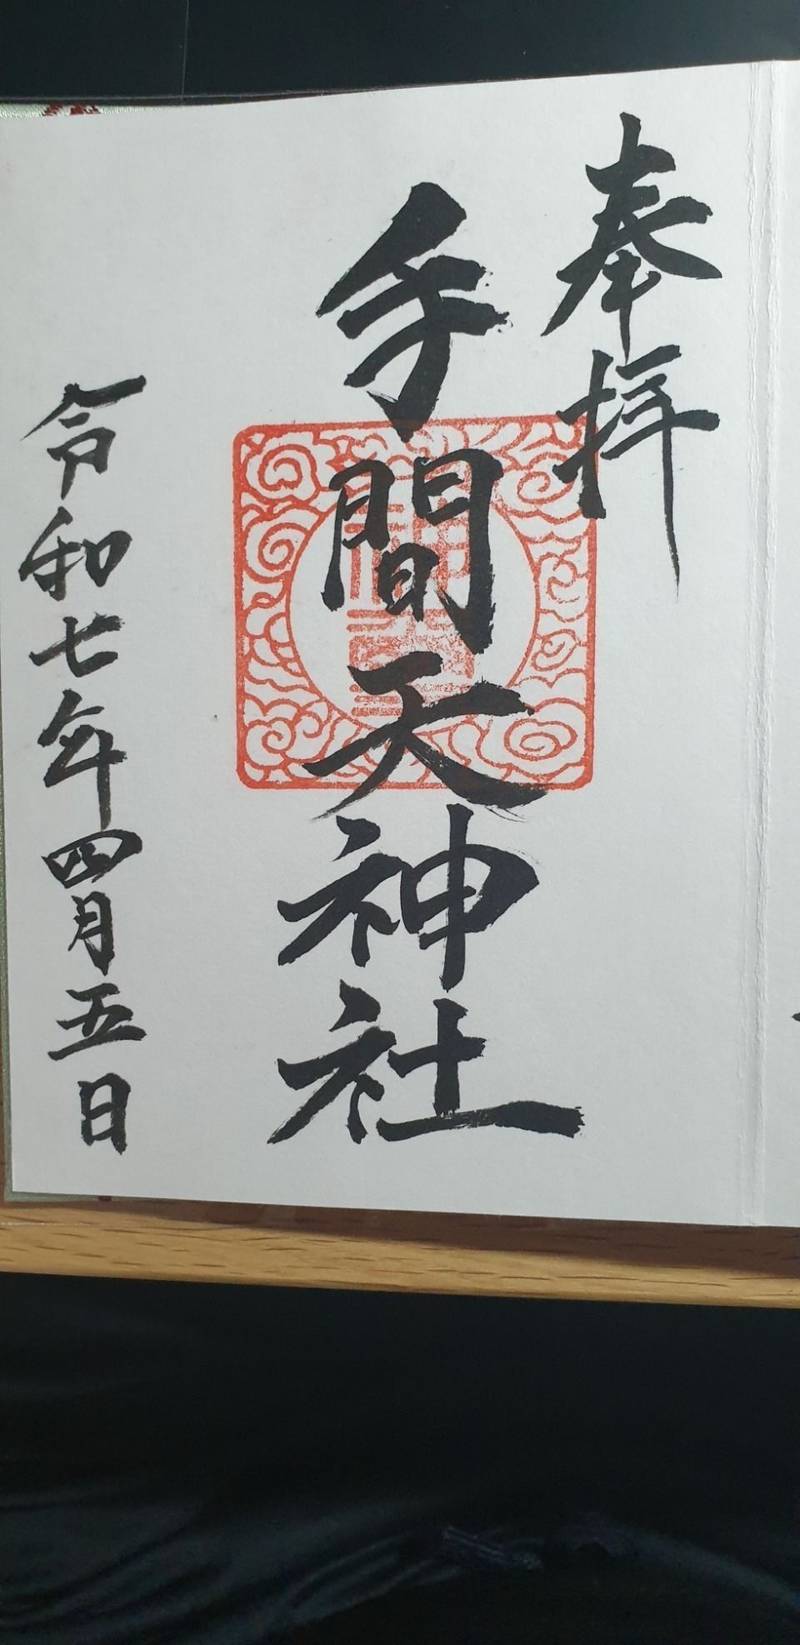 奉拝
手間天神社
令和七年四月五日